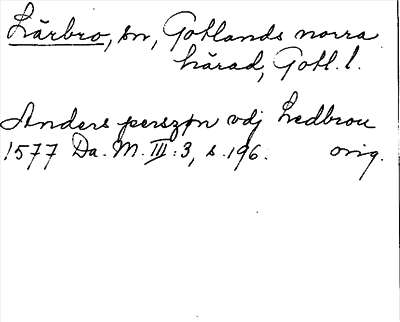 Lärbro, sn, Gotlands norra
härad, Gotl. l.
Anders perszøn vdj Ledbrou
1577 Da. M. III:3, s. 196. orig.